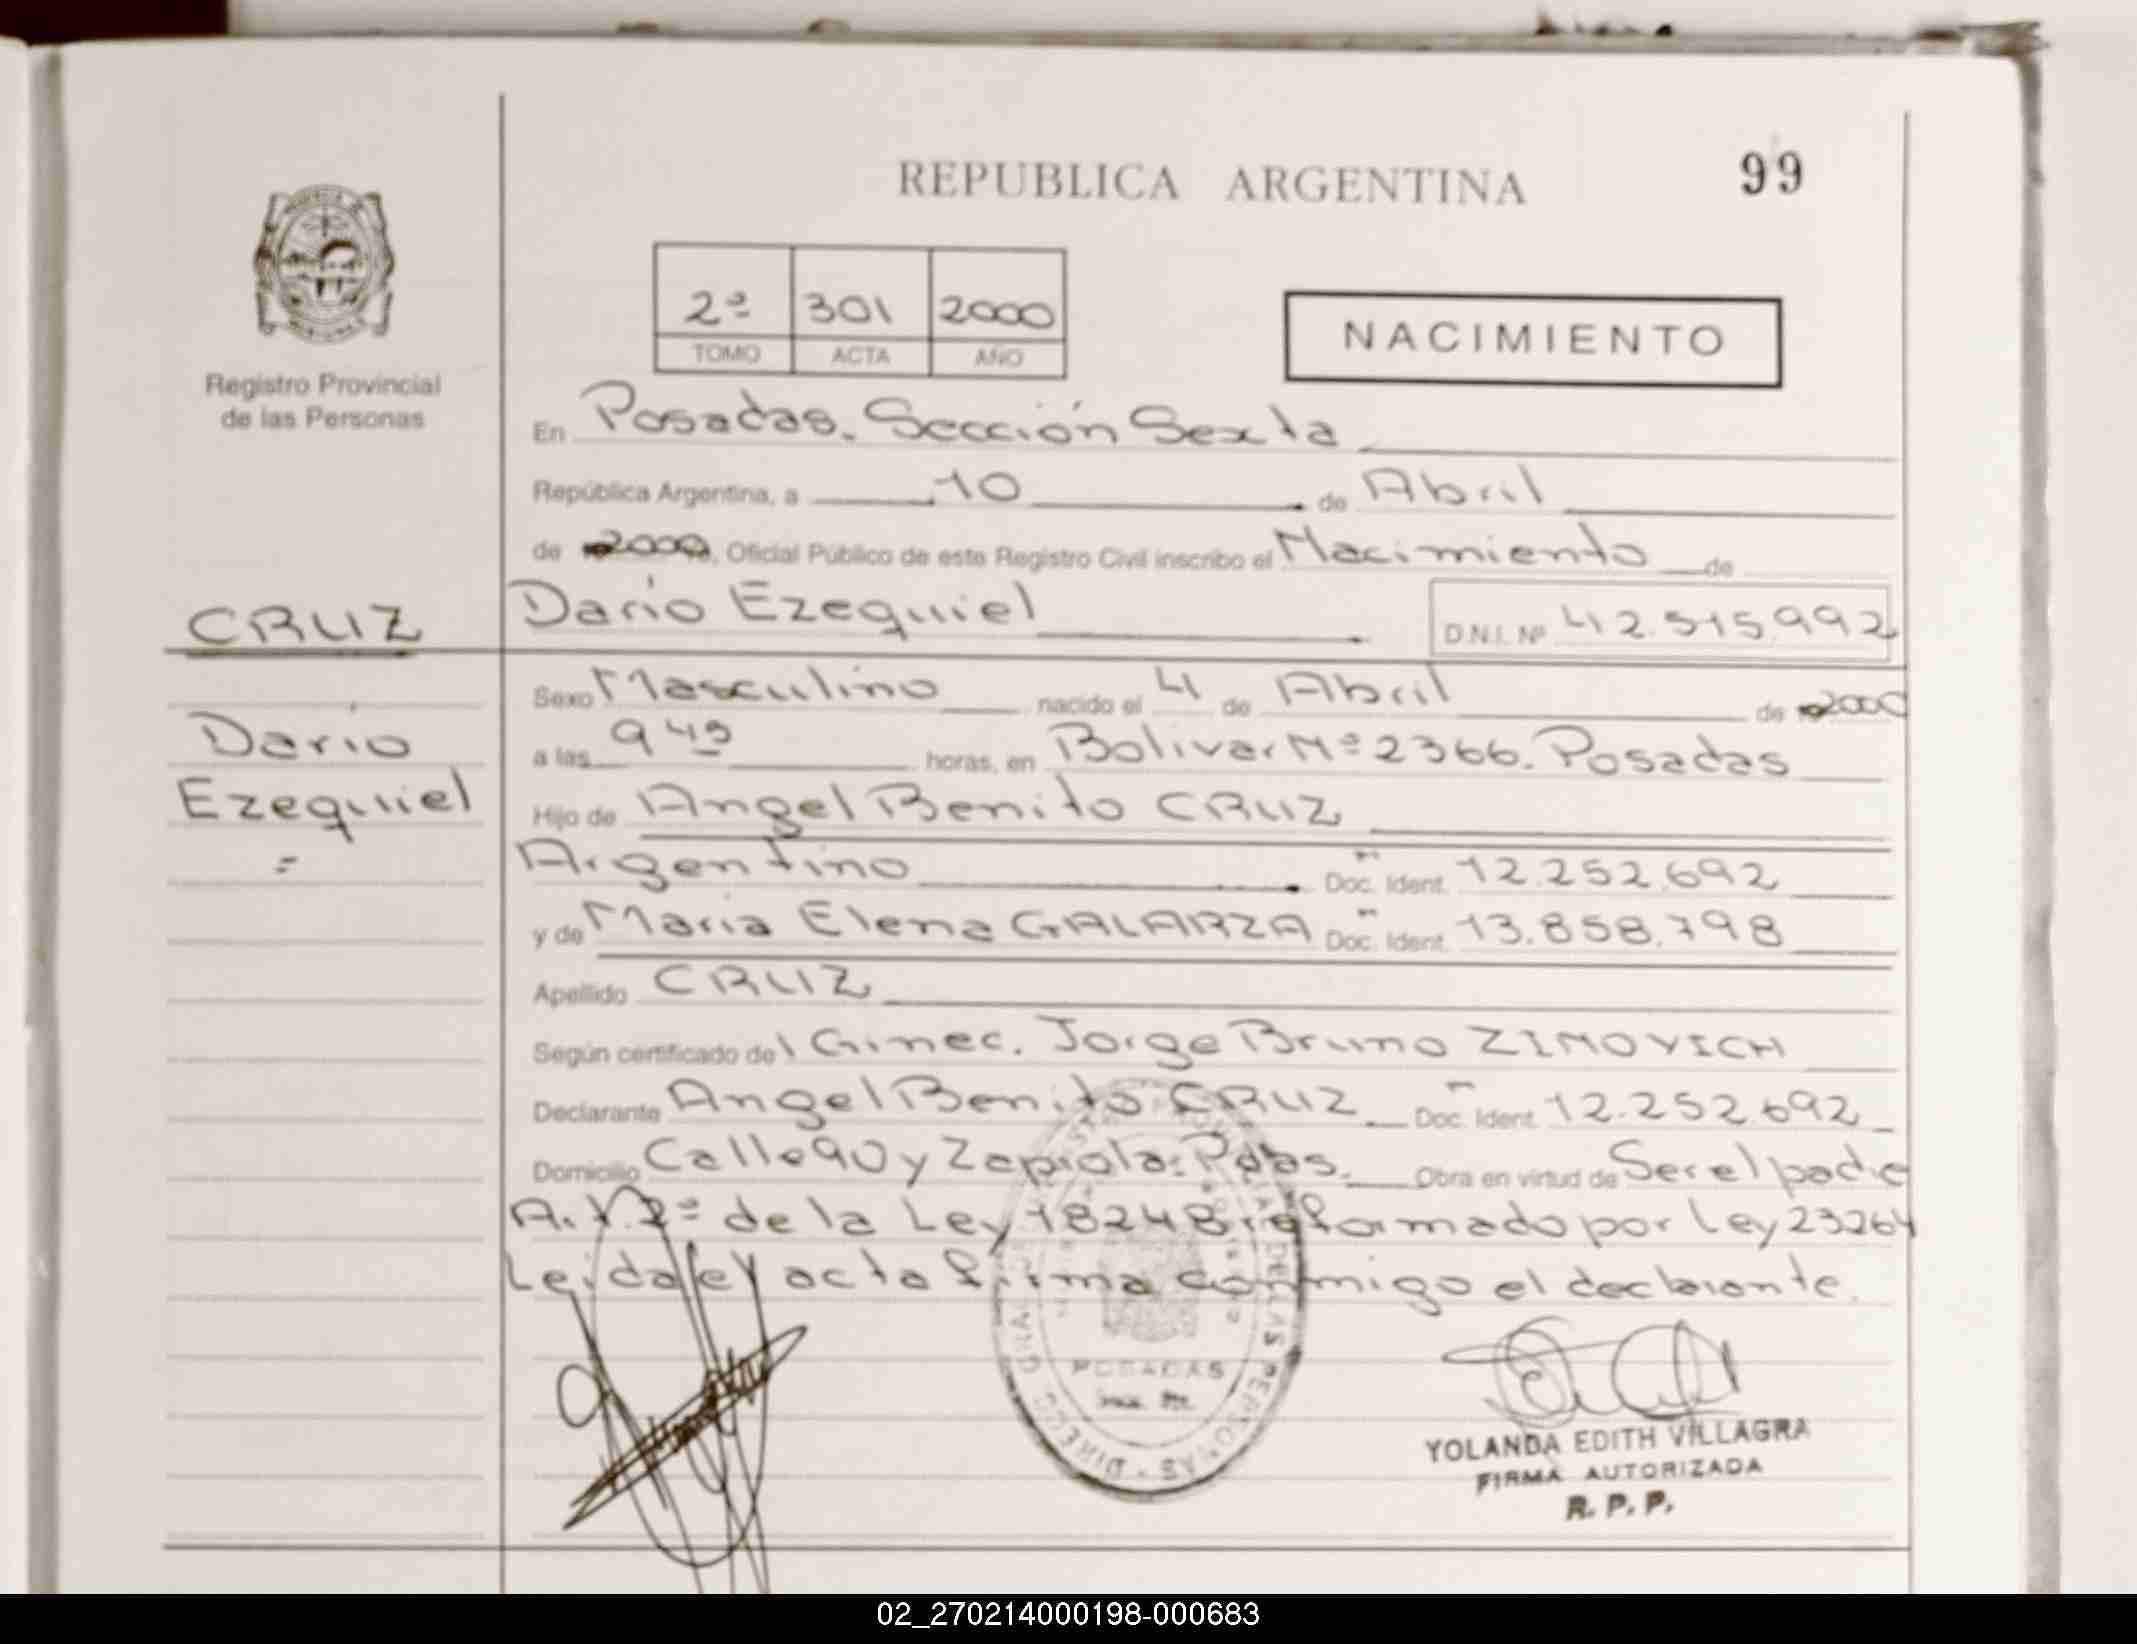 REPUBLICA ARGENTINA
99
2º 301 2000
TOMO ACTA AÑO
NACIMIENTO
Registro Provincial
de las Personas
En Posadas. Sección Sexta
República Argentina, a 10 de Abril
de 2000, Oficial Público de este Registro Civil inscribo el Nacimiento de
CRUZ
Darío Ezequiel
D.N.I. Nº 42.515.992
Sexo Masculino nacido el 4 de Abril de 2000
Darío
Ezequiel
=
a las 9 45 horas, en Bolivar Nº 2366. Posadas
Hijo de Angel Benito CRUZ
Argentino Doc. Ident. 12.252.692
y de Maria Elena GALARZA Doc. Ident. 13.858.798
Apellido CRUZ
Según certificado del Ginec. Jorge Bruno ZIMOVICH
Declarante Angel Benito CRUZ Doc. Ident. 12.252.692
Domicilio Calle 90 y Zapiola. Pdas. Obra en virtud de Ser el padre
Art. 2º de la Ley 18248 reformado por Ley 23264
Leida el acta firma conmigo el declarante.
POSADAS
YOLANDA EDITH VILLAGRA
FIRMA AUTORIZADA
R. P. P.
02_270214000198-000683